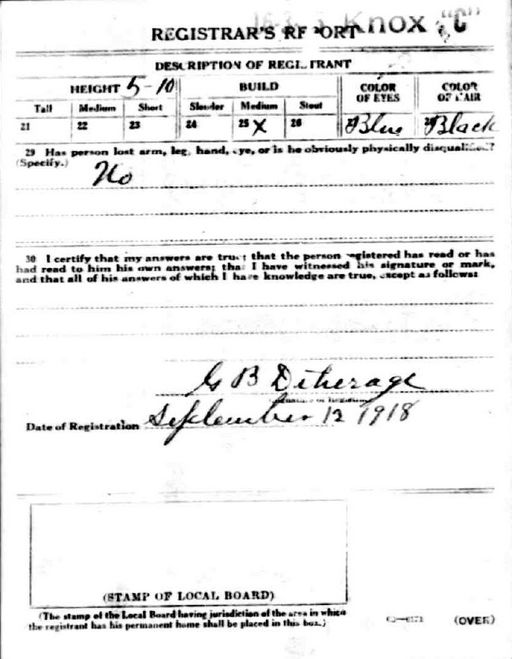 16-3- 3 Knox "C"
REGISTRAR'S REPORT
DESCRIPTION OF REGISTRANT
HEIGHT 5-10 BUILD COLOR OF EYES COLOR OF HAIR
Tall Medium Short Slender Medium Stout
21 22 23 24 25 X 26 27 Blue 28 Black
29 Has person lost arm, leg, hand, eye, or is he obviously physically disqualified?
(Specify.) No
30 I certify that my answers are true; that the person registered has read or has
had read to him his own answers; that I have witnessed his signature or mark,
and that all of his answers of which I have knowledge are true, except as follows:
G B Ditherage
Date of Registration September 12 1918
(STAMP OF LOCAL BOARD)
(The stamp of the Local Board having jurisdiction of the area in which
the registrant has his permanent home shall be placed in this box.)
(OVER)